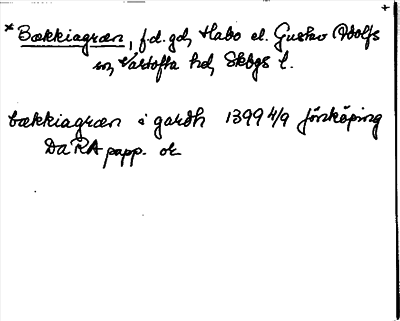 +
* Bækkiagræn, f.d. gd, Habo el. Gustav Adolfs
sn, Vartofta hd, Skbgs l.
bækkiagræn i gardh 1399 4/9 Jönköping
DaRA papp. ok